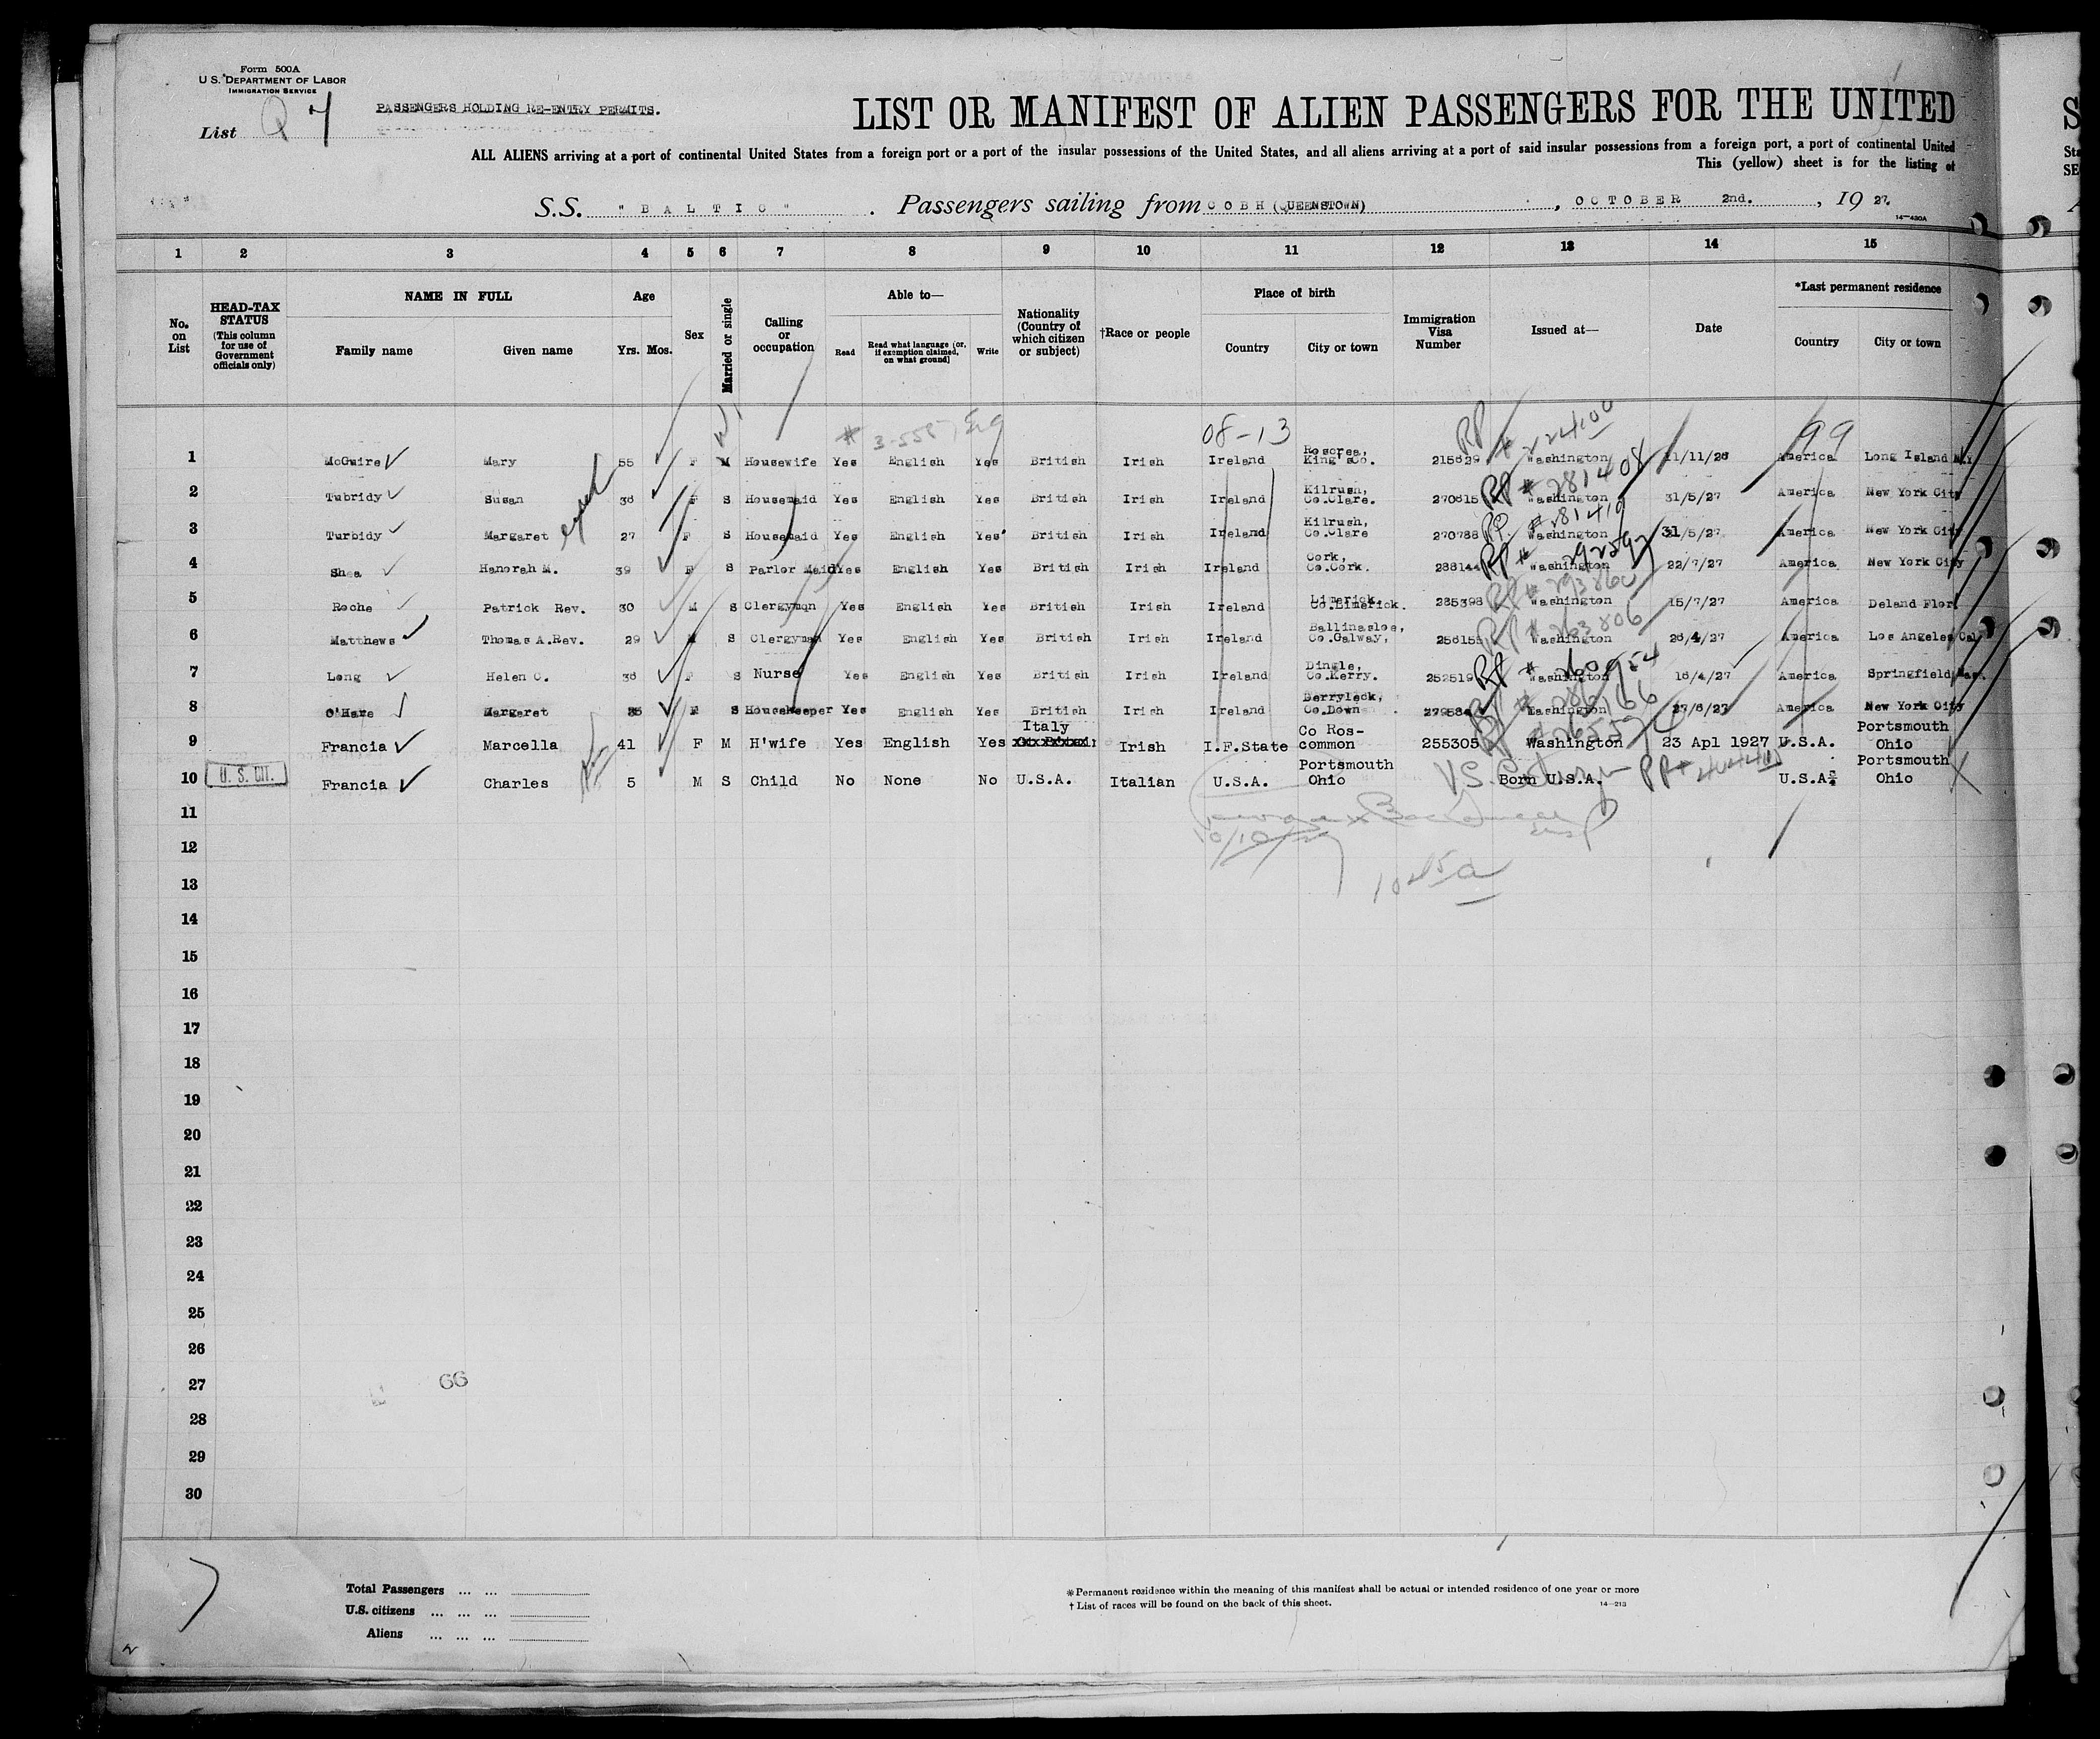 Form 500A
U. S. DEPARTMENT OF LABOR
IMMIGRATION SERVICE
List 7
PASSENGERS HOLDING RE-ENTRY PERMITS.
LIST OR MANIFEST OF ALIEN PASSENGERS FOR THE UNITED
ALL ALIENS arriving at a port of continental United States from a foreign port or a port of the insular possessions of the United States, and all aliens arriving at a port of said insular possessions from a foreign port, a port of continental United
This (yellow) sheet is for the listing of
S.S. "BALTIC". Passengers sailing from COBH (QUEENSTOWN), OCTOBER 2nd., 19 27.
14—430A
1 2 3 4 5 6 7 8 9 10 11 12 13 14 15
No. on List
HEAD-TAX STATUS (This column for use of Government officials only)
NAME IN FULL
Family name Given name
Age
Yrs. Mos.
Sex
Married or single
Calling or occupation
Able to—
Read Read what language (or, if exemption claimed, on what ground) Write
Nationality (Country of which citizen or subject)
†Race or people
Place of birth
Country City or town
Immigration Visa Number
Issued at—
Date
*Last permanent residence
Country City or town
08-13 99
1 McGuire Mary 55 F M Housewife Yes English Yes British Irish Ireland Roscrea, King's Co. 215829 Washington 11/11/26 America Long Island N.Y
2 Tubridy Susan 36 F S Housemaid Yes English Yes British Irish Ireland Kilrush, Co.Clare. 270815 RP # 281408 Washington 31/5/27 America New York City
3 Turbidy Margaret 27 F S Housemaid Yes English Yes British Irish Ireland Kilrush, Co.Clare 270788 RP. # 281410 Washington 31/5/27 America New York City
4 Shea Hanorah M. 39 F S Parlor Maid Yes English Yes British Irish Ireland Cork, Co.Cork. 288144 RP # Washington 22/7/27 America New York City
5 Roche Patrick Rev. 30 M S Clergyman Yes English Yes British Irish Ireland Limerick, Co.Limerick. 285398 RP # 293860 Washington 15/7/27 America Deland Flor.
6 Matthews Thomas A.Rev. 29 M S Clergyman Yes English Yes British Irish Ireland Ballinasloe, Co.Galway, 25615 RP # 263806 Washington 26/4/27 America Los Angeles Cal
7 Long Helen C. 36 F S Nurse Yes English Yes British Irish Ireland Dingle, Co.Kerry. 252519 RP # 260954 Washington 16/4/27 America Springfield Mas.
8 O'Hare Margaret 35 F S Housekeeper Yes English Yes British Irish Ireland Derryleck, Co.Down 27958 RP # 286166 Washington 27/6/27 America New York City
9 Francia Marcella 41 F M H'wife Yes English Yes Italy Irish I.F.State Co Roscommon 255305 Washington 23 Apl 1927 U.S.A. Portsmouth Ohio
10 U. S. CIT. Francia Charles 5 M S Child No None No U.S.A. Italian U.S.A. Portsmouth Ohio Born U.S.A. U.S.A. Portsmouth Ohio
11
12
13
14
15
16
17
18
19
20
21
22
23
24
25
26
27 66
28
29
30
Total Passengers ... ...
U.S. citizens ... ... ...
Aliens ... ... ...
*Permanent residence within the meaning of this manifest shall be actual or intended residence of one year or more
† List of races will be found on the back of this sheet.
14—213